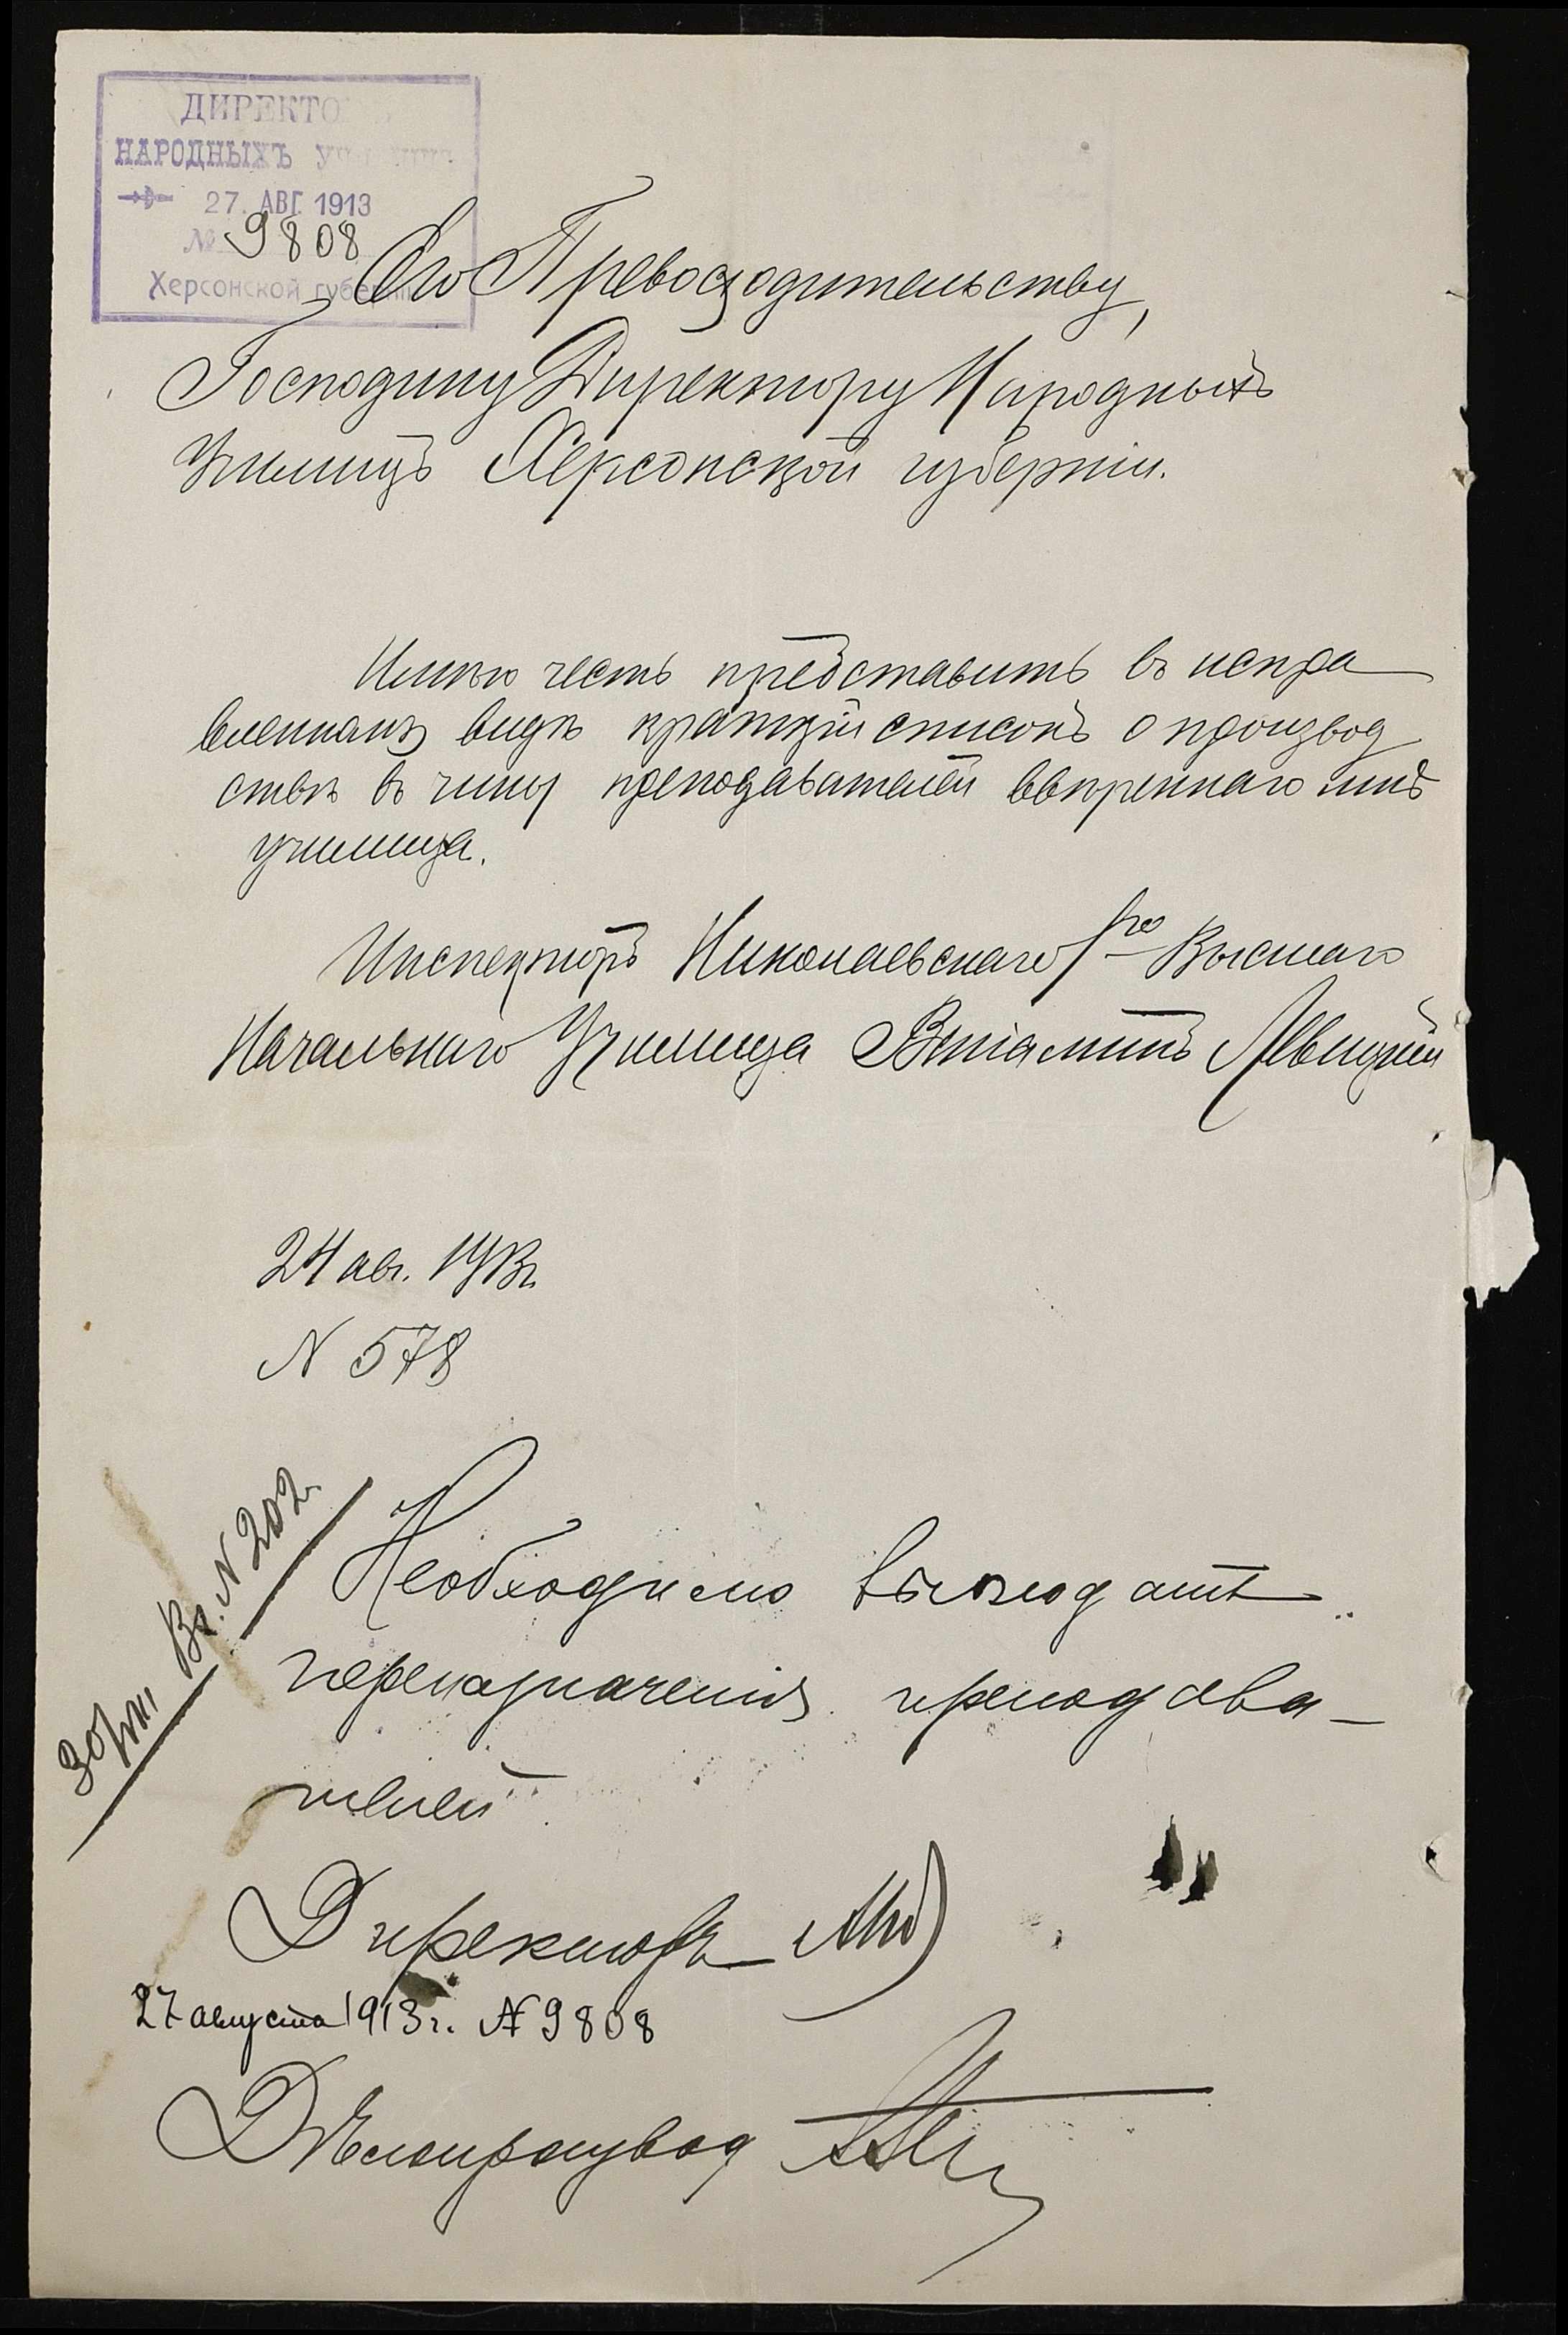 ДИРЕКТО
НАРОДНЫХЪ УЧИЛИЩЪ
27. АВГ. 1913
№ 9808
Херсонской губерніи
Его Превосходительству,
Господину Директору Народныхъ
Училищъ Херсонской губерніи.
Имѣю честь представить въ испра
вленномъ видѣ краткій списокъ о производ
ствѣ въ чины преподавателей ввѣреннаго мнѣ
училища.
Инспекторъ Николаевскаго 1го Высшаго
Начальнаго Училища Веніаминъ Левицкій
24 авг. 1913г.
N 578
Вх. N 202
30/VIII
Необходимо
переназначенія преподава-
телей
Директоръ
27 августа 1913 г. № 9808
Дѣлопроизвод